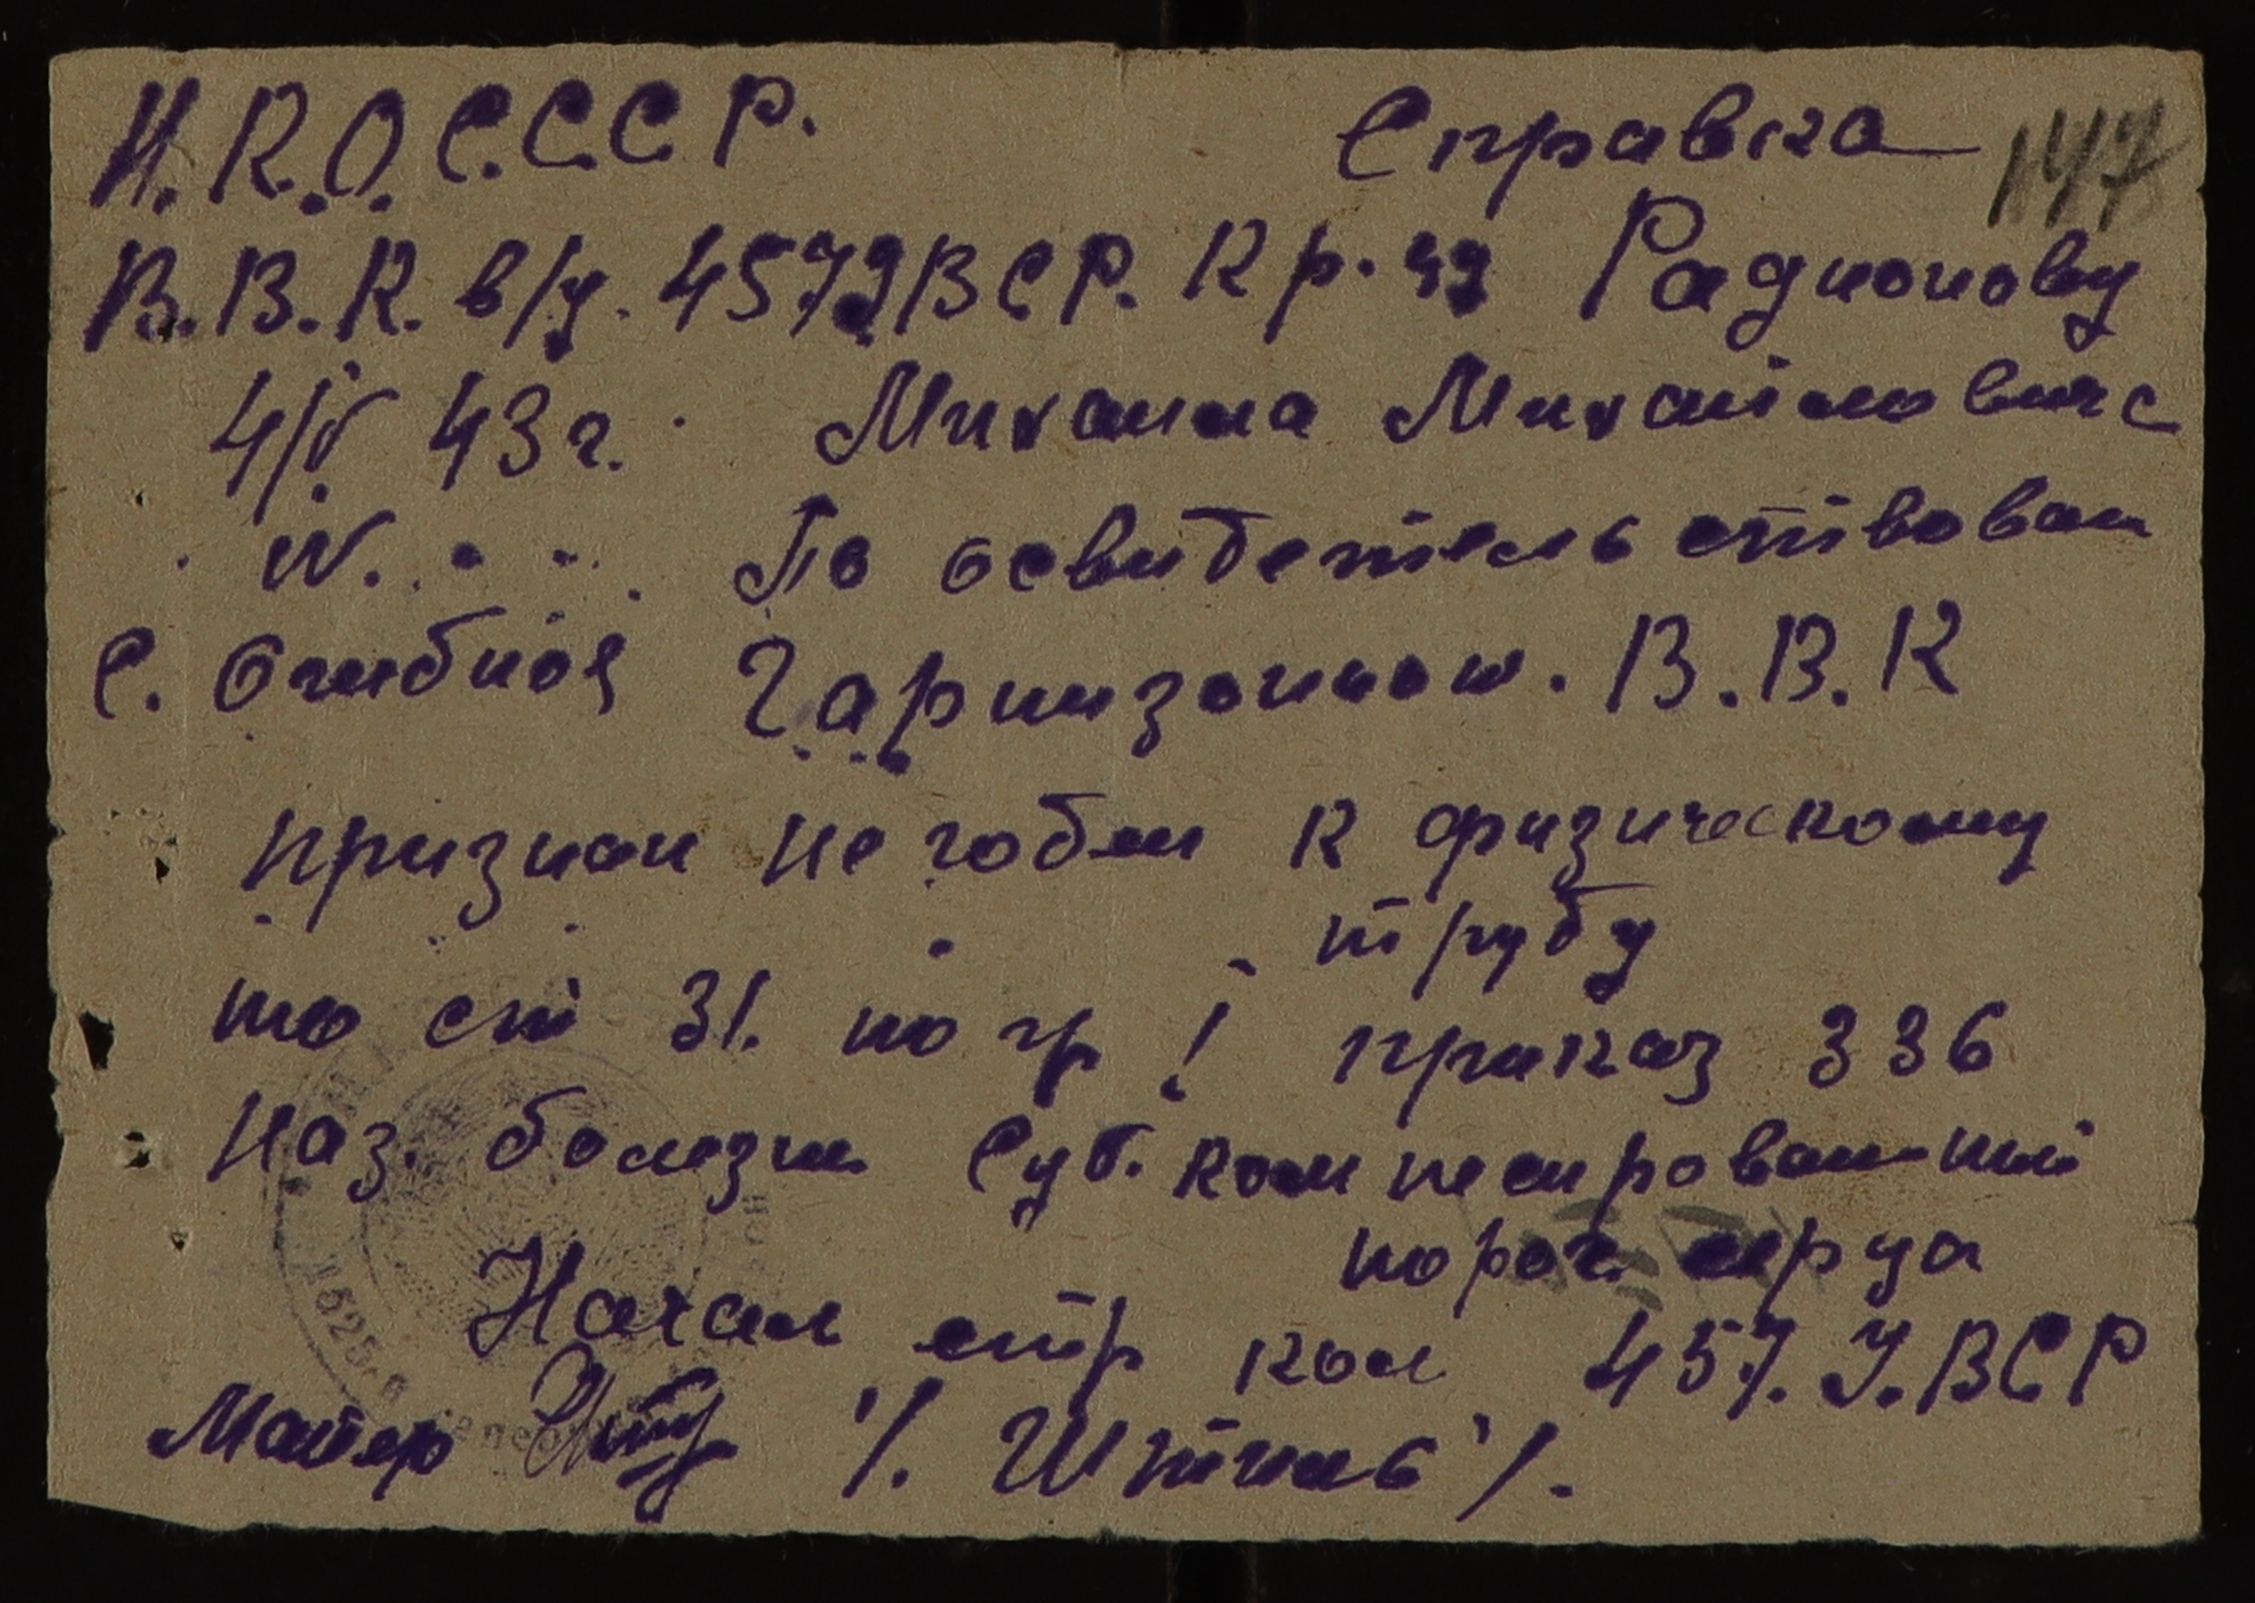 Н.К.О. С.С.С.Р. Справка 147
В.В.К. в/ч. 4579 ВСР. Кр-цу Радионову
4/V 43 г. Михаила Михайловича
N. По освидетельствован
С. Гарнизонном. В.В.К
признан не годен к физическому
труду
по ст 31. по гр I приказ 336
Наз. болезни Суб. компенсированный
порок серца
Начал стр кол 457. У. ВСР
Майор /. Штиль /.
1525